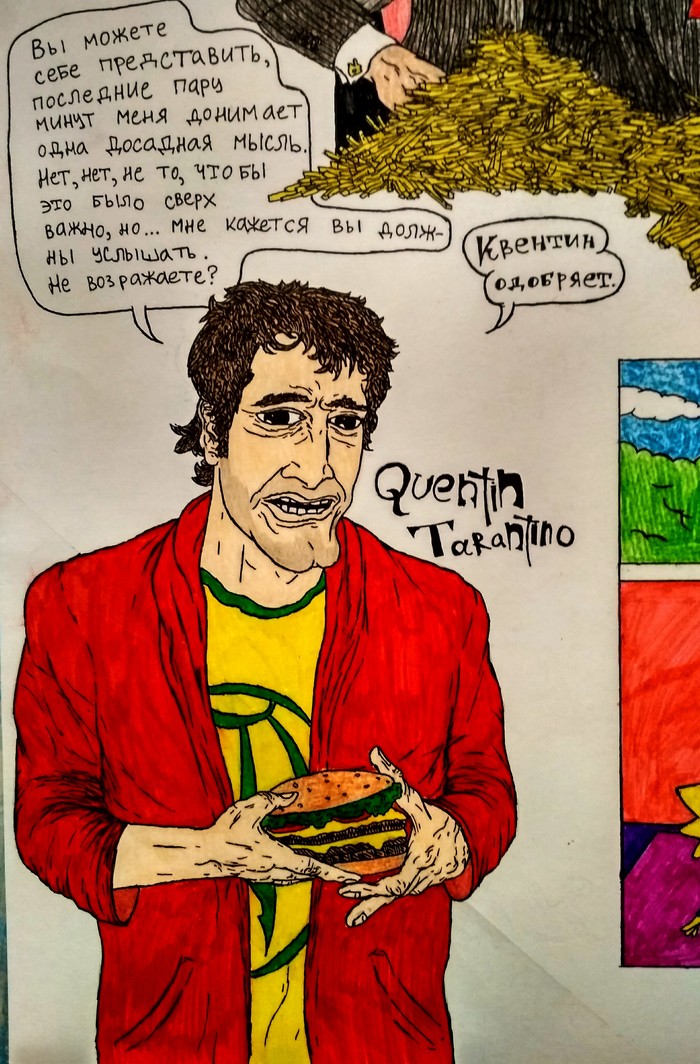 Вы можете
себе представить,
последние пару
минут меня донимает
одна досадная мысль.
Нет, нет, не то, чтобы
это было сверх
важно, но... мне кажется вы долж-
ны услышать.
Не возражаете?
Квентин
одобряет.
Quentin
Tarantino